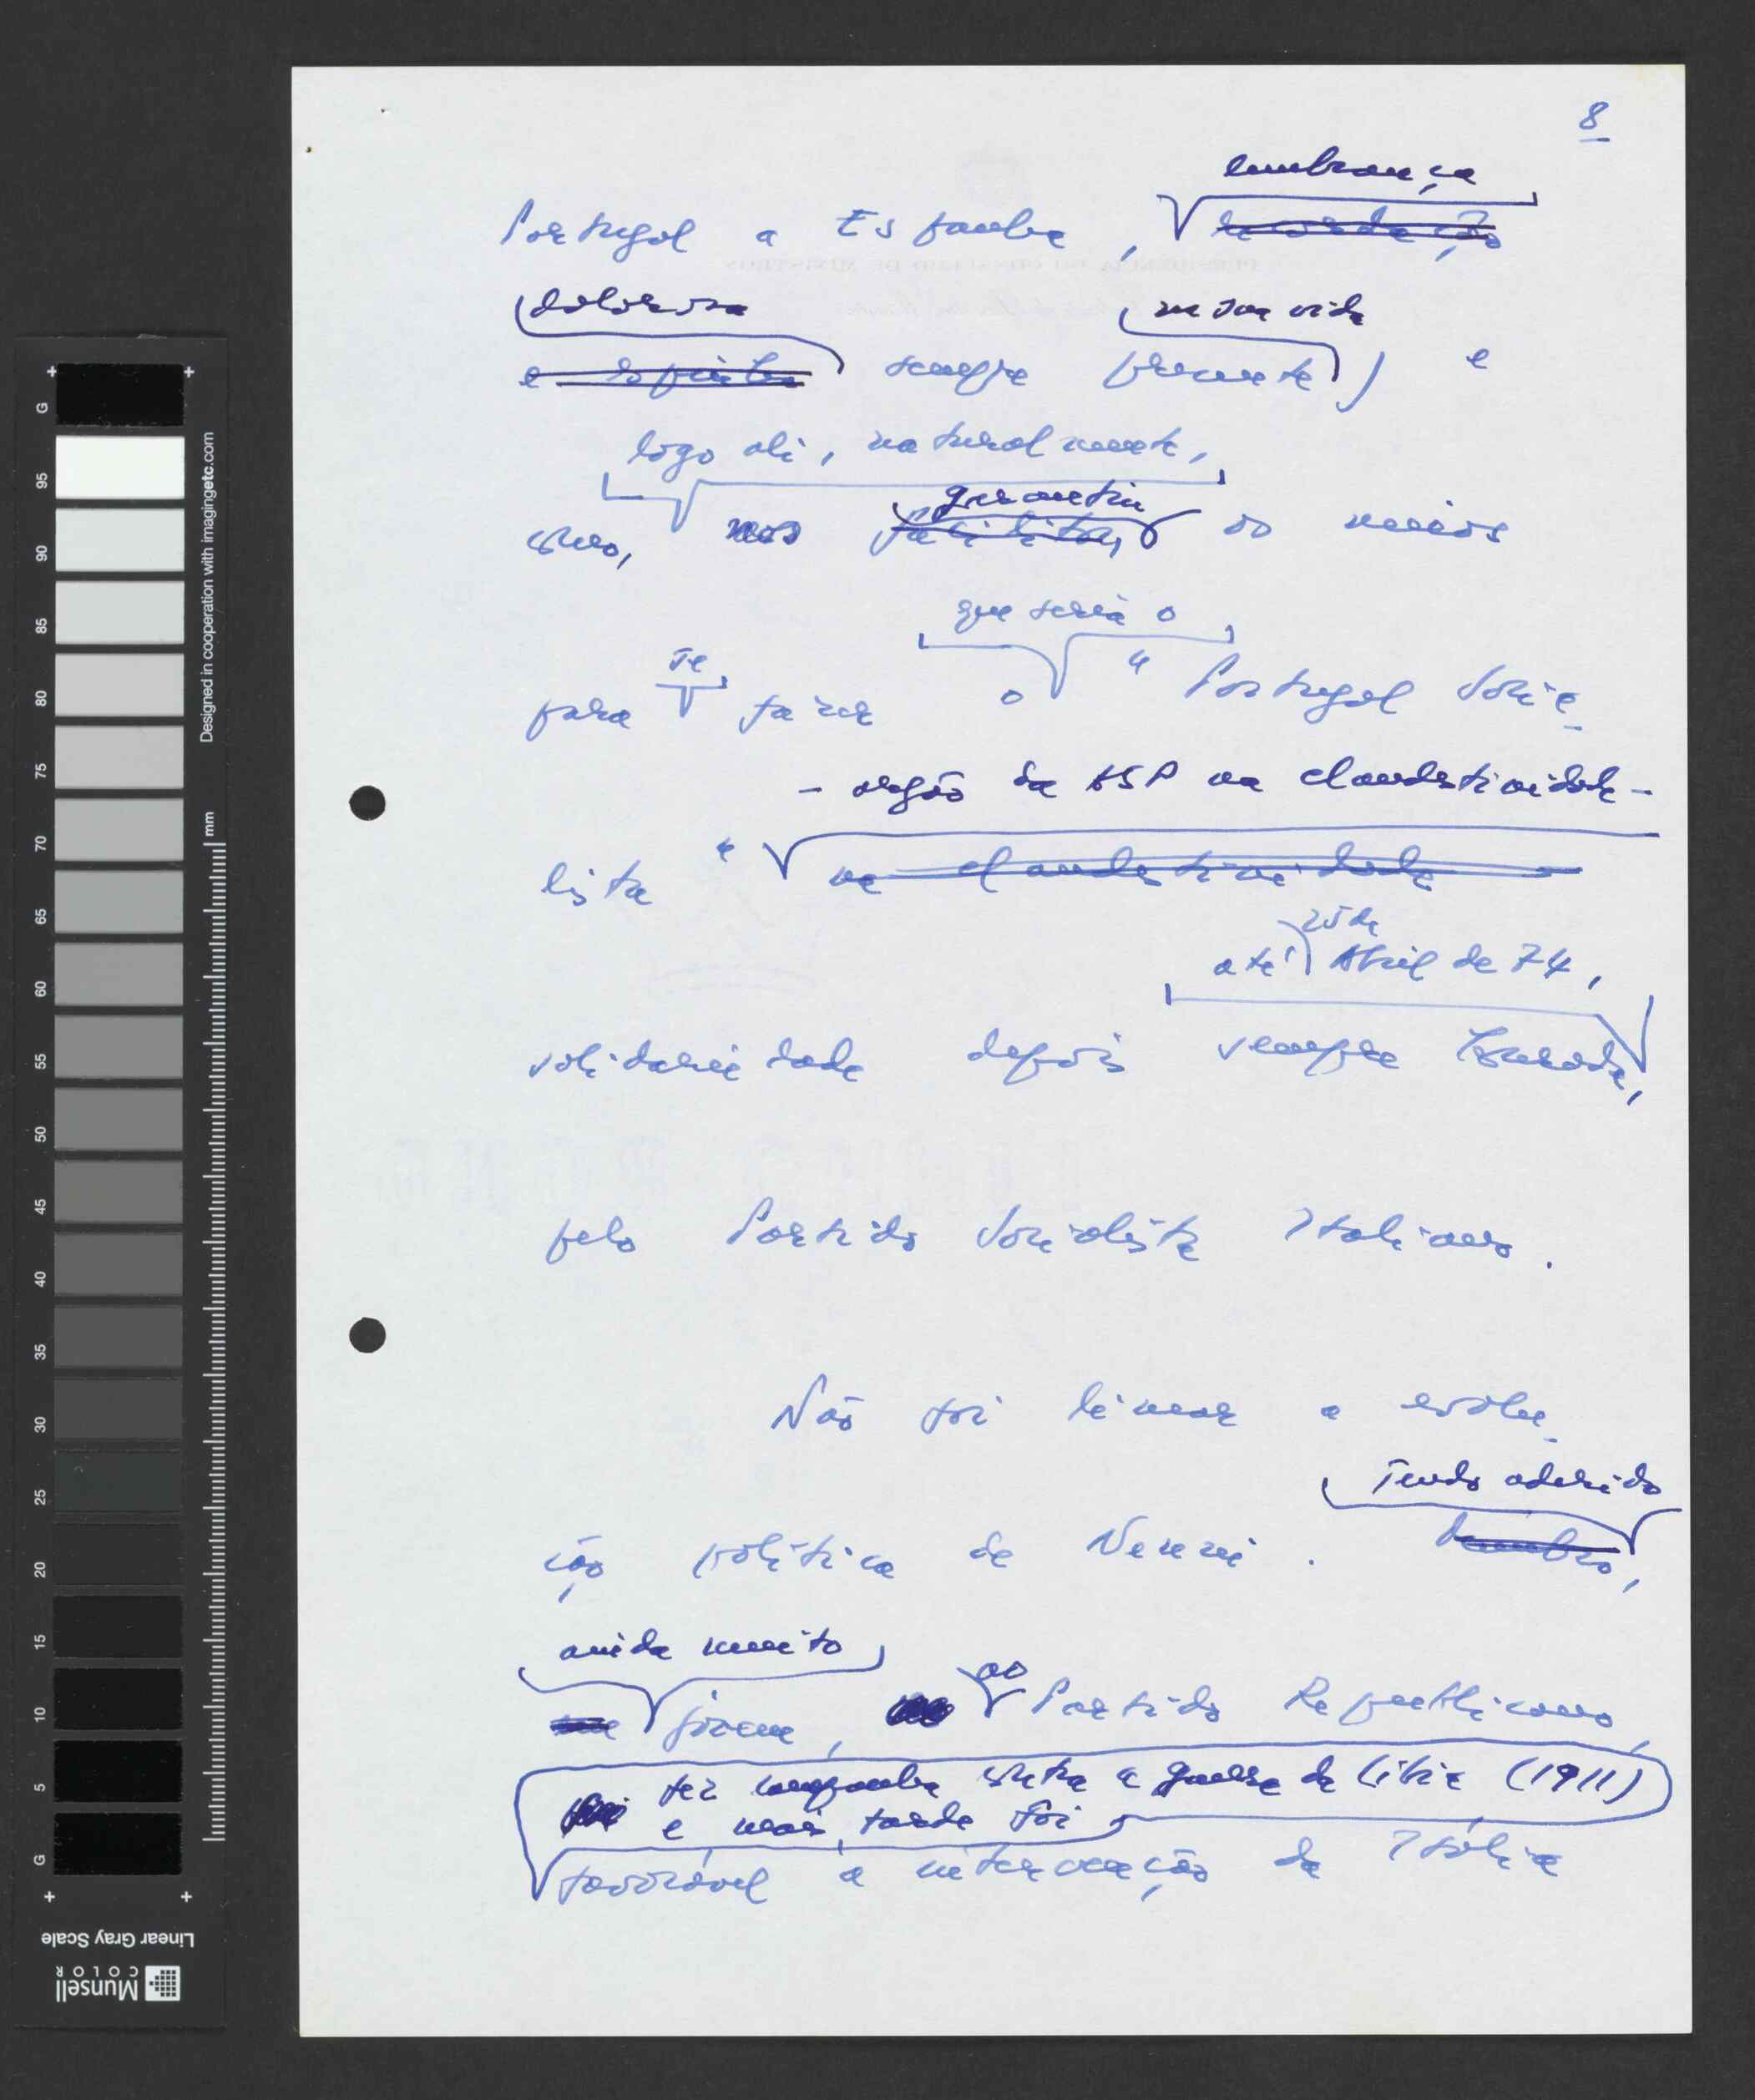 8
lembrança
Portugal a Espanha, recordação
dolorosa na sua vida
e espinho sempre presente) e
logo ali, naturalmente,
garantiu
isso, nos facilitou os meios
que seria o
se
para fazer o "Portugal Socia-
- orgão da ASP na clandestinidade -
lista" na clandestinidade
25 de
até Abril de 74,
solidariedade depois sempre
pelo Partido Socialista Italiano.
Não foi linear a evolu-
Tendo aderido
ção política de Nenni. Membro,
ainda muito
ao
jovem, Partido Republicano,
fez campanha contra a guerra da Líbia (1911)
e mais tarde foi
favorável à intervenção da Itália
G
95
90
85
80
75
70
65
60
55
50
45
40
35
30
25
20
15
10
5
G
mm
Designed in cooperation with imagingetc.com
Linear Gray Scale
Munsell
COLOR